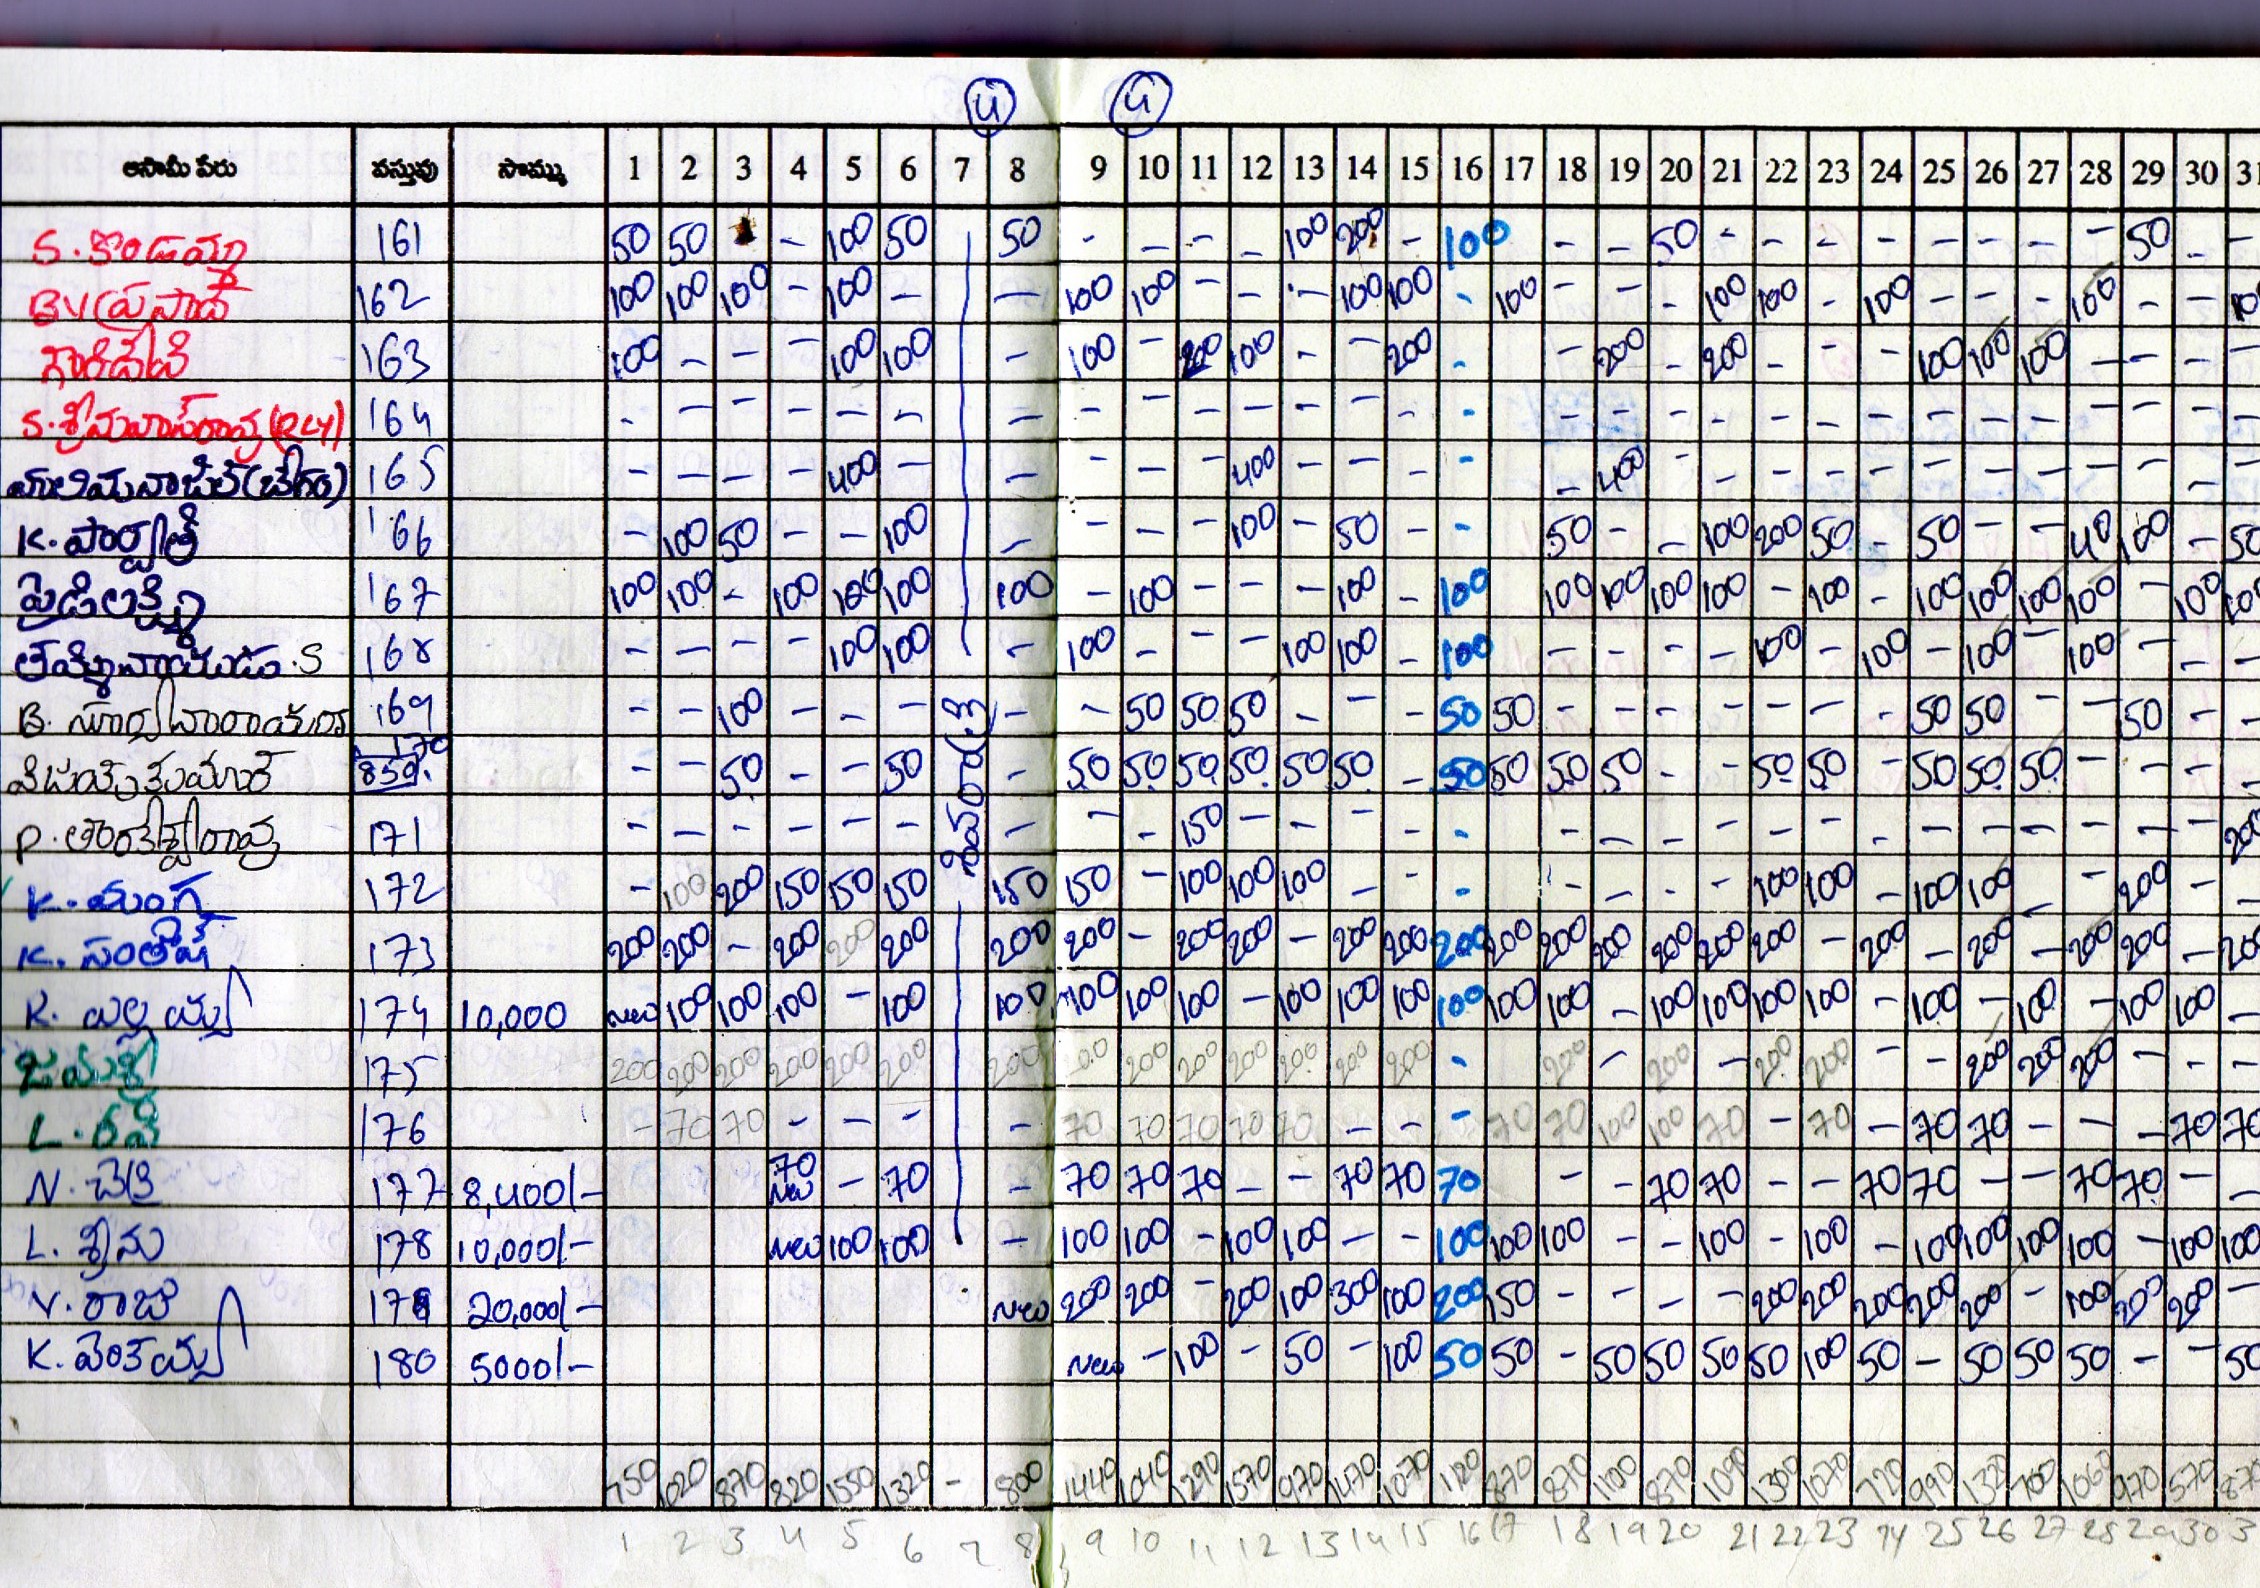 4 4
ఆసామీ పేరు వస్తువు సొమ్ము 1 2 3 4 5 6 7 8 9 10 11 12 13 14 15 16 17 18 19 20 21 22 23 24 25 26 27 28 29 30 31
S. కొండమ్మ 161 50 50 - 100 50 50 - - - - 100 200 - 100 - - 50 - - - - - - - - 50 - -
BV ప్రసాద్ 162 100 100 100 - 100 - - 100 100 - - - 100 100 - 100 - - - 100 100 - 100 - - - 100 - - 100
గౌరిదేవి 163 100 - - - 100 100 - 100 - 200 100 - - 200 - - 200 - 200 - - - 100 100 100 - - - -
S. శ్రీనివాసరావు (RLY) 164 - - - - - - - - - - - - - - - - - - - - - - - - - - - - -
(బేగం) 165 - - - - 400 - - - - - 400 - - - - - 400 - - - - - - - - - - - -
K. పార్వతి 166 - 100 50 - - 100 - - - - 100 - 50 - - 50 - - 100 200 50 - 50 - - 40 100 - 50
పైడిలక్ష్మి 167 100 100 - 100 100 100 100 - 100 - - - 100 - 100 100 100 100 100 - 100 - 100 100 100 100 - 100 100
తమ్మినాయుడు. S 168 - - - - 100 100 - 100 - - - 100 100 - 100 - - - - 100 - 100 - 100 - 100 - - -
B. సూర్యనారాయణ 169 - - 100 - - - - - 50 50 50 - - - 50 50 - - - - - - - 50 50 - - 50 - -
విజయ్ కుమార్ 170 859. - - 50 - - 50 - 50 50 50 50 50 50 - 50 50 50 50 - - 50 50 - 50 50 50 - - - -
P. 171 - - - - - - - - - 150 - - - - - - - - - - - - - - - - - - 200
K. మంగ 172 - 100 200 150 150 150 150 150 - 100 100 100 - - - - - - - 100 100 - 100 100 - - 200 - -
K. సంతోష్ 173 200 200 - 200 200 200 200 200 - 200 200 - 200 200 200 200 200 200 200 200 200 - 200 - 200 - 200 200 - 200
K. ఎల్లయ్య 174 10,000 New 100 100 100 - 100 100 100 100 100 - 100 100 100 100 100 100 - 100 100 100 100 - 100 - 100 - 100 100 -
జయశ్రీ 175 200 200 200 200 200 200 200 200 200 200 200 200 200 200 - 200 - 200 - 200 200 - - 200 200 200 - - -
L. రవి 176 - 70 70 - - - - 70 70 70 70 70 - - - 70 70 100 100 70 - 70 - 70 70 - - - 70 70
N. చిట్టి 177 8,400/- 70 New - 70 - 70 70 70 - - 70 70 70 - - 70 70 - - 70 70 - - 70 70 - -
L. శ్రీను 178 10,000/- New 100 100 - 100 100 - 100 100 - - 100 100 100 - - 100 - 100 - 100 100 100 100 - 100 100
V. రాజు 179 20,000/- New 200 200 - 200 100 300 100 200 150 - - - - 200 200 200 200 200 - 100 200 200 -
K. వెంకయ్య 180 5000/- New - 100 - 50 - 100 50 50 - 50 50 50 50 100 50 - 50 50 50 - - 50
750 1020 870 820 1550 1320 - 800 1440 1040 1290 1570 970 1470 1070 1120 870 870 1100 870 1090 1300 1070 720 990 1320 700 1060 970 570 870
1 2 3 4 5 6 7 8 9 10 11 12 13 14 15 16 17 18 19 20 21 22 23 24 25 26 27 28 29 30 3